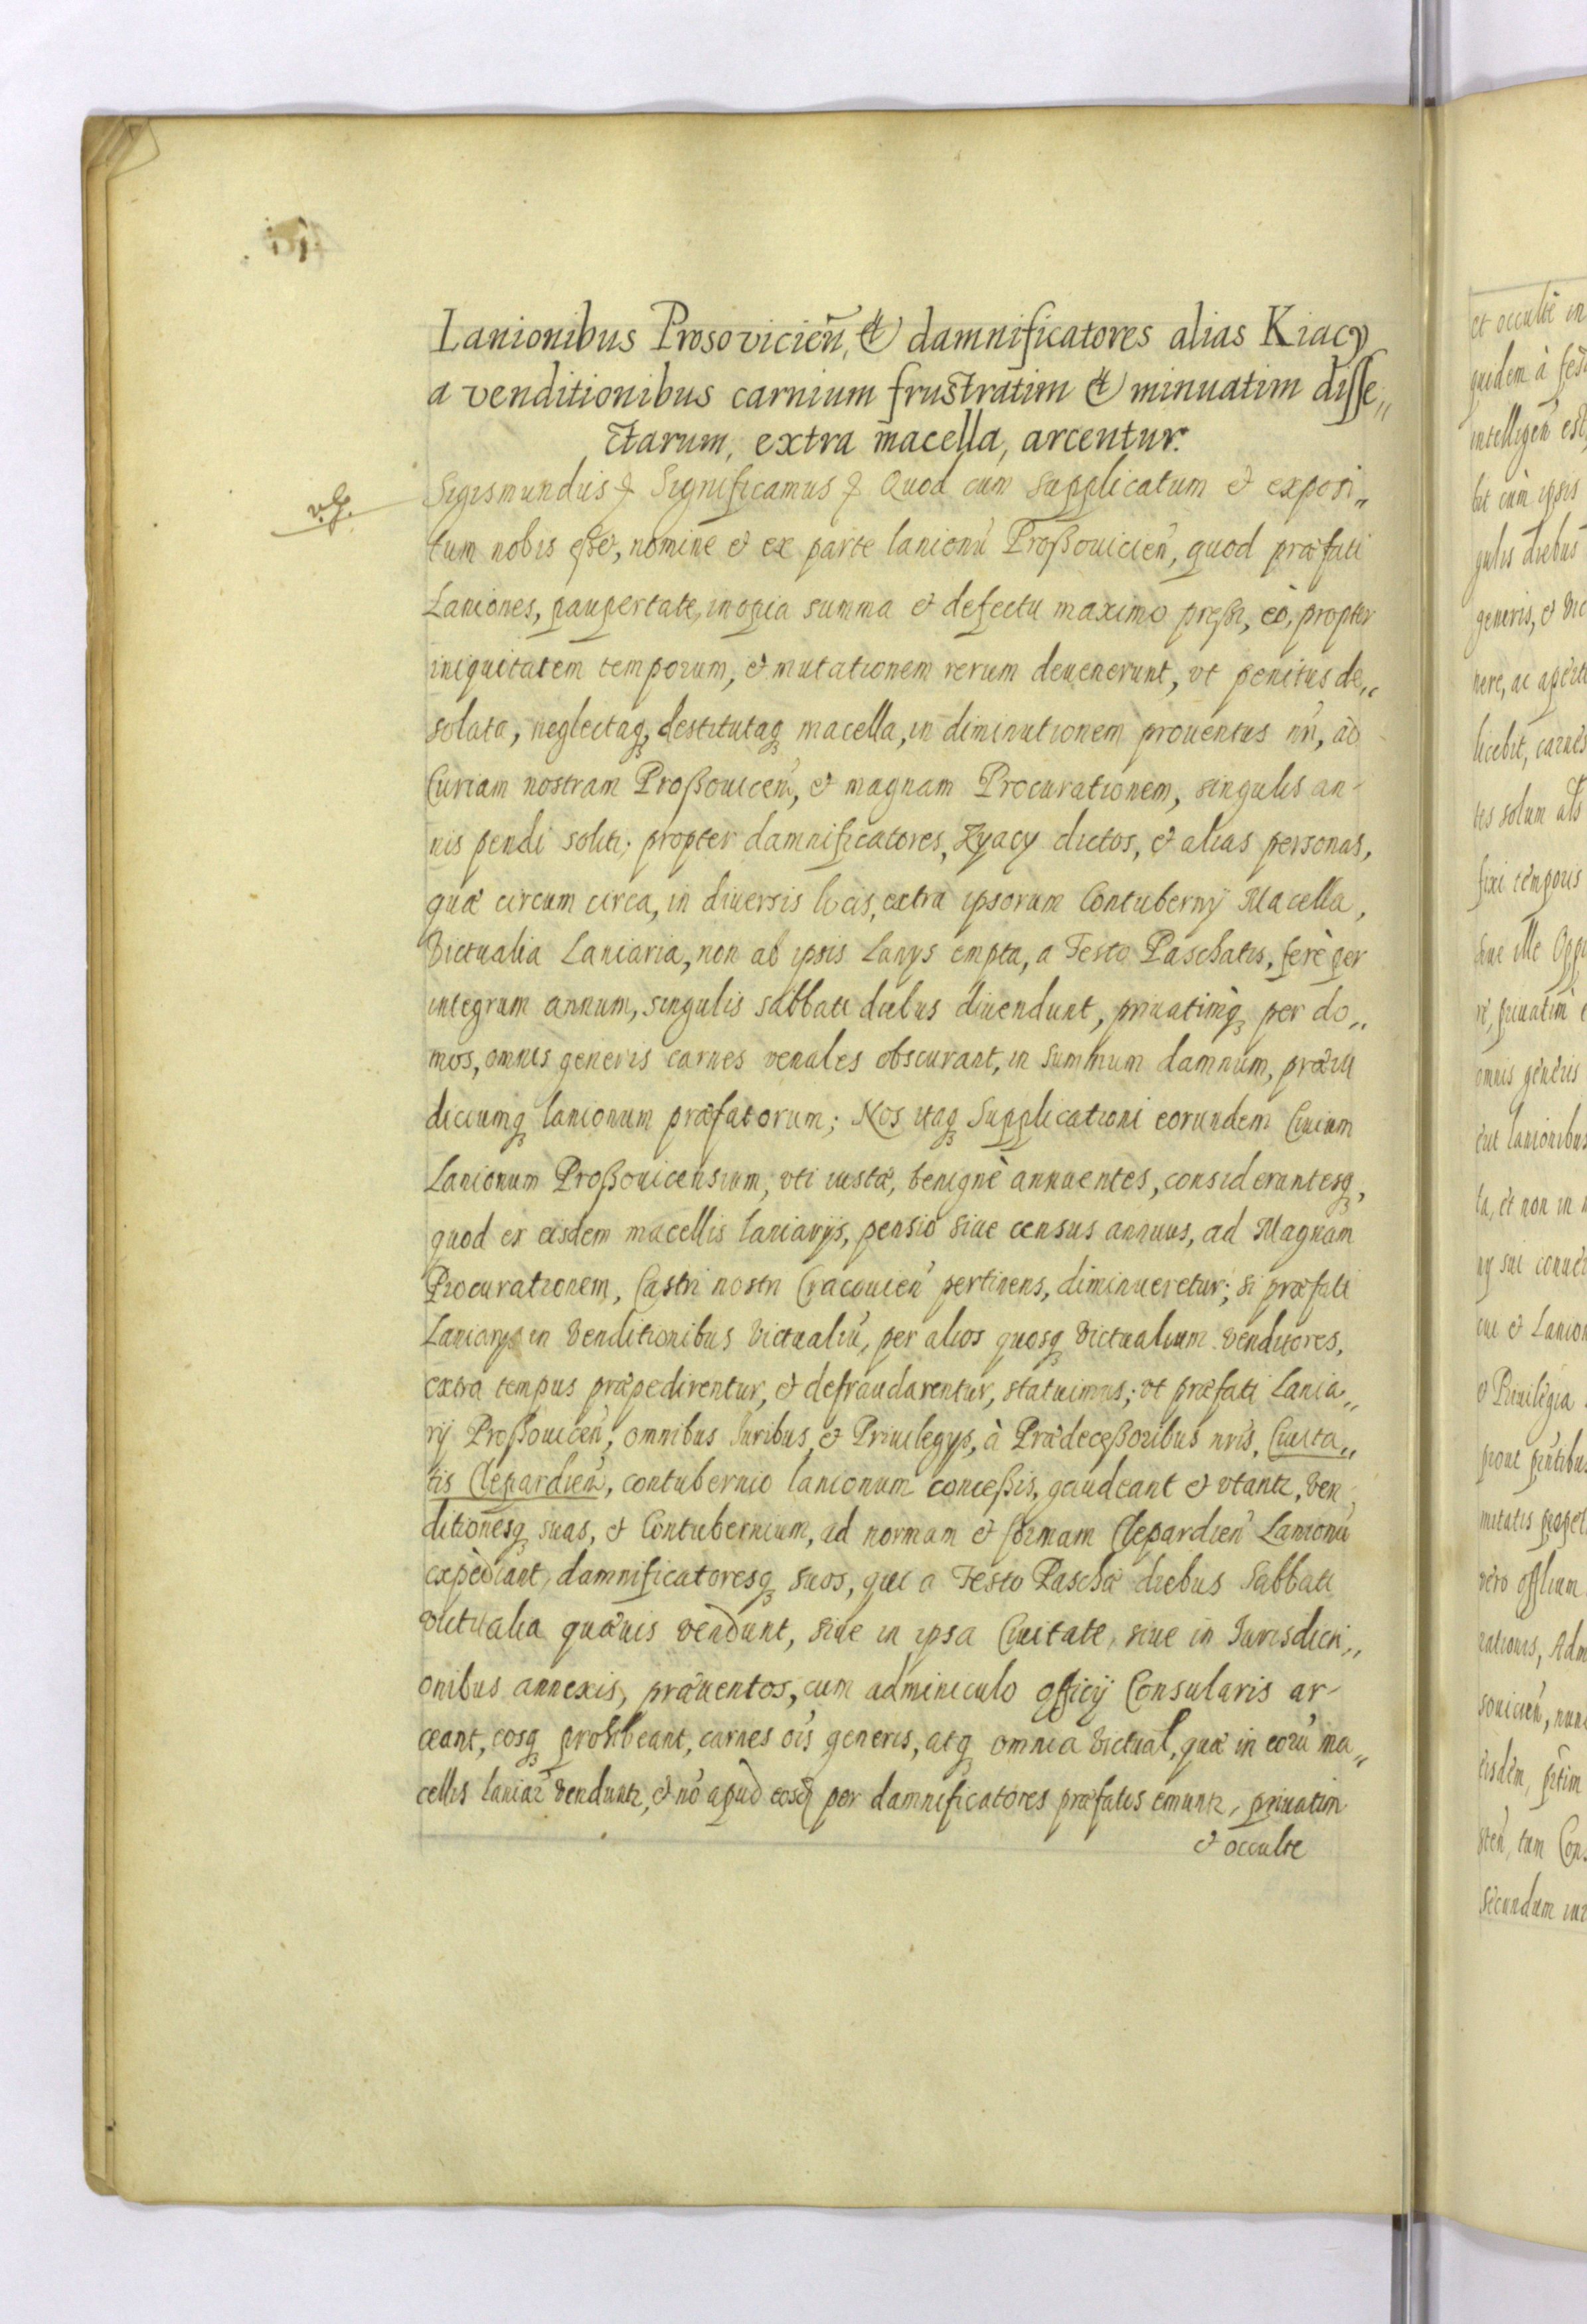 Lanionibus Prosovicień, et damnificatores alias Kiacy
a venditionibus carnium frustratim et minuatim disse„
ctarum, extra macella, arcentur.
Sigismundus Significamus Quod cum Supplicatum & exposi„
tum nobis esset, nomine & ex parte lanionū Proßouicień, quod præfati
Laniones, paupertate, inopia summa & defectu maximo preßi, eò, propter
iniquitatem temporum, & mutationem rerum deuenerunt, vt penitus de„
solata, neglectaq, destitutaq macella, in diminutionem prouentus nri, ad
Curiam nostram Proßouiceń, & magnam Procurationem, singulis an-
nis pendi soliti; propter damnificatores, Kyacy dictos, & alias personas,
quæ circum circa, in diuersis locis, extra ipsorum Contubernij Macella,
Victualia Laniaria, non ab ipsis Lanys empta, a Festo Paschatis, ferè per
integrum annum, singulis sabbati diebus diuendunt, priuatimq per do„
mos, omnis generis carnes venales obscurant, in summum damnum, præiu
diciumq lanionum præfatorum; Nos itaq Supplicationi eorundem Ciuium
Lanionum Proßouicensium, vti iustæ, benignè annuentes, considerantesq,
quod ex eisdem macellis laniarijs, pensio siue census annuus, ad Magnam
Procurationem, Castri nostri Cracouień pertinens, diminueretur; si præfati
Laniarij in venditionibus victualiū, per alios quosq victualium venditores,
extra tempus præpedirentur, & defraudarentur, statuimus; vt præfati Lania„
rij Proßouiceń, omnibus Iuribus & Priuilegys, à Prædeceßoribus nris, Ciuita„
tis Clepardień, contubernio lanionum conceßis, gaudeant & vtantr, ven„
ditionesq suas, & Contubernium, ad normam & formam Clepardień Lanionū
expediant, damnificatoresq suos, qui a Festo Paschæ diebus Sabbati
victualia quæuis vendunt, siue in ipsa Ciuitate, siue in Iurisdicti„
onibus annexis, præuentos, cum adminiculo officij Consularis ar-
ceant, eosq prohibeant, carnes ois generis, atq omnia victual, quæ in eorū ma„
cellis laniar venduntr, & nō apud eosd per damnificatores præfatos emuntr, priuatim
& occulte
et occultè in
quidem à fest
intelligen est
bit cum ipsis
gulis diebus
generis, & vic
nere, ac apert
licebit, carnes
tes solum
fixi temporis
siue ille Oppi
priuatim
omnis generis
lanionibus
et non in
sui
& Lanion
& Priuilegia
prout
mitatis
vero
rationis, Adm
souicień, nunc
eisdem,
tum Cons
secundum